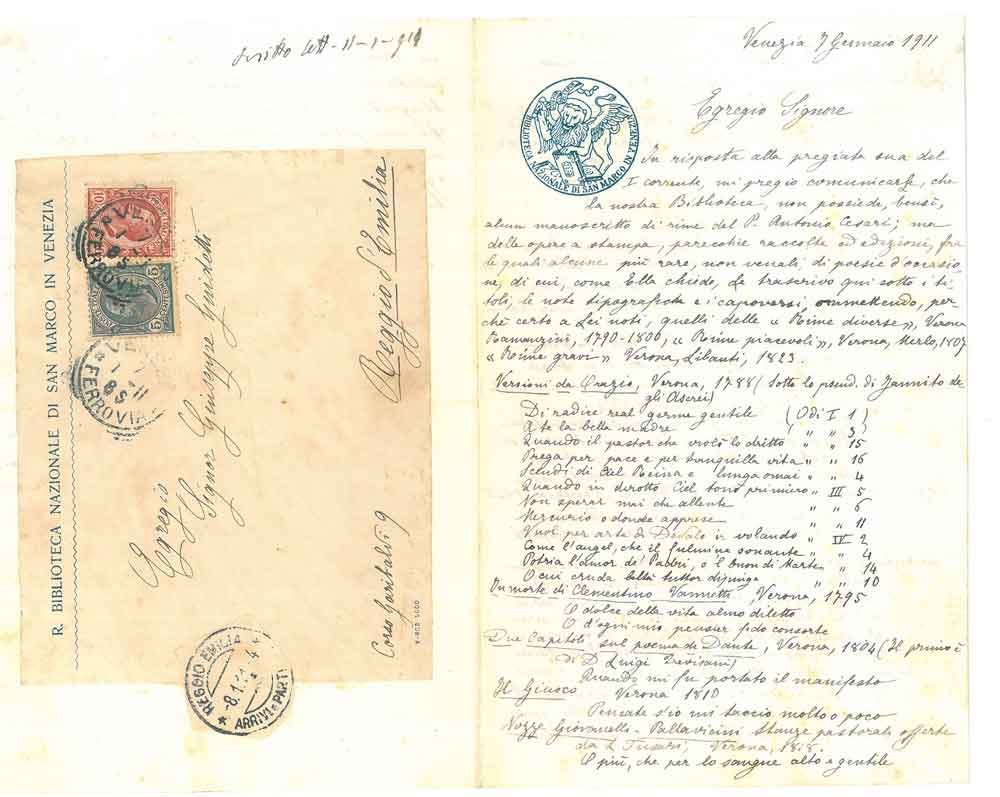 Scritto lett - 11-1-911
R. BIBLIOTECA NAZIONALE DI SAN MARCO IN VENEZIA
10
5
FERROVIA
FERROVIA
Egregio
Signor Giuseppe Guidetti
Corso Garibaldi 9
Reggio d'Emilia
REGGIO EMILIA
-8.1.11.4
ARRIVI E PARTENZE
Venezia 7 Gennaio 1911
BIBLIOTECA NAZIONALE DI SAN MARCO IN VENEZIA
Egregio Signore
In risposta alla pregiata sua del
I corrente, mi pregio comunicarLe, che
la nostra Biblioteca, non possiede, bensì,
alcun manoscritto di rime del P. Antonio Cesari; ma
delle opere a stampa, parecchie raccolte ed edizioni, fra
le quali alcune più rare, non venali di poesie d'occasio-
ne, di cui, come Ella chiede, Le trascrivo qui sotto i ti-
toli, le note tipografiche e i capoversi, ommettendo, per-
chè certo a Lei noti, quelli delle « Rime diverse », Verona
Ramanzini, 1790-1800, « Rime piacevoli », Verona, Merlo, 1807
« Rime gravi » Verona, Libanti, 1823.
Versioni da Orazio, Verona, 1788 (Sotto lo pseud. di Zannito de
gli Ascrei)
Di radice real germe gentile (Odi I 1)
A te la bella madre " " 3)
Quando il pastor che violò lo dritto " " 15
Prega per pace e per tranquilla vita " " 16
Scendi di Ciel Reina e lunga omai " " 4
Quando in dirotto Ciel tonò primiero " III 5
Non sperar mai che allente " " 6
Mercurio o donde apprese " " 11
Vuol per arte di Dedalo ir volando " IV 2
Come l'augel, che il fulmine sonante " " 4
Potria l'amor de' Padri, o l buon di Marte " " 14
O cui cruda beltà tuttor dipinge " " 10
In morte di Clementino Vannetti, Verona, 1795
O dolce della vita almo diletto
O d'ogni mio pensier fido consorte
Due Capitoli sul poema di Dante, Verona, 1804 (Il primo è
di D Luigi Trevisani)
Quando mi fu portato il manifesto
Il Giuoco Verona 1810
Pensate s'io mi taccio molto o poco
Nozze Giovanelli - Pallavicini Stanze pastorali offerte
da L Verona, 1818.
O più, che per lo sangue alto e gentile